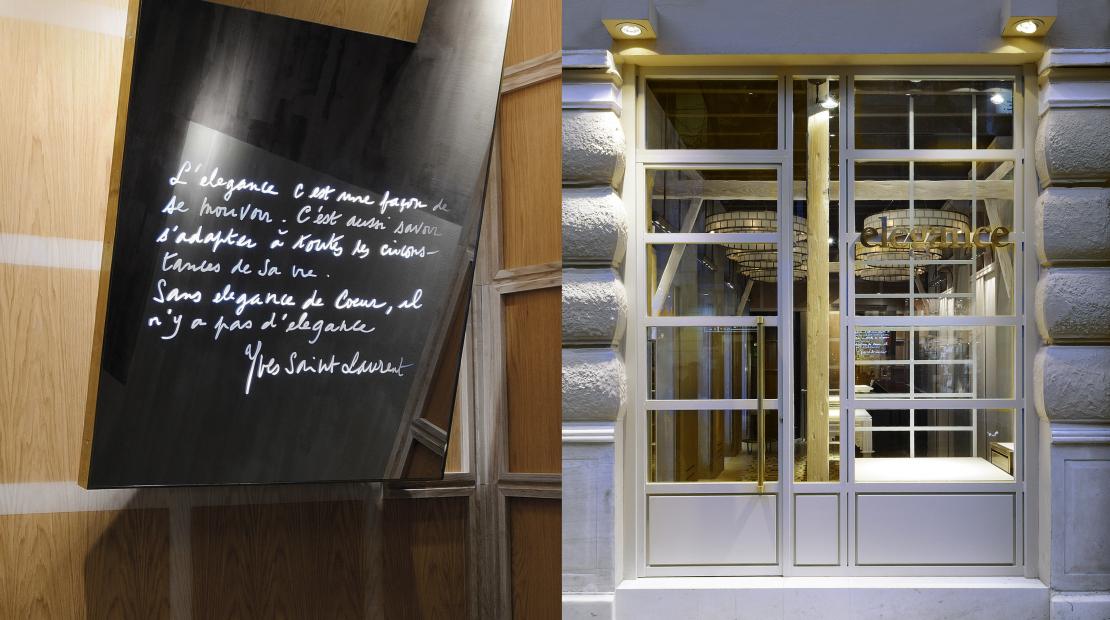 L'elegance c'est une façon de
se mouvoir. C'est aussi savoir
s'adapter à toutes les circons-
tances de sa vie.
Sans elegance de Coeur, il
n'y a pas d'elegance
Yves Saint Laurent
elegance